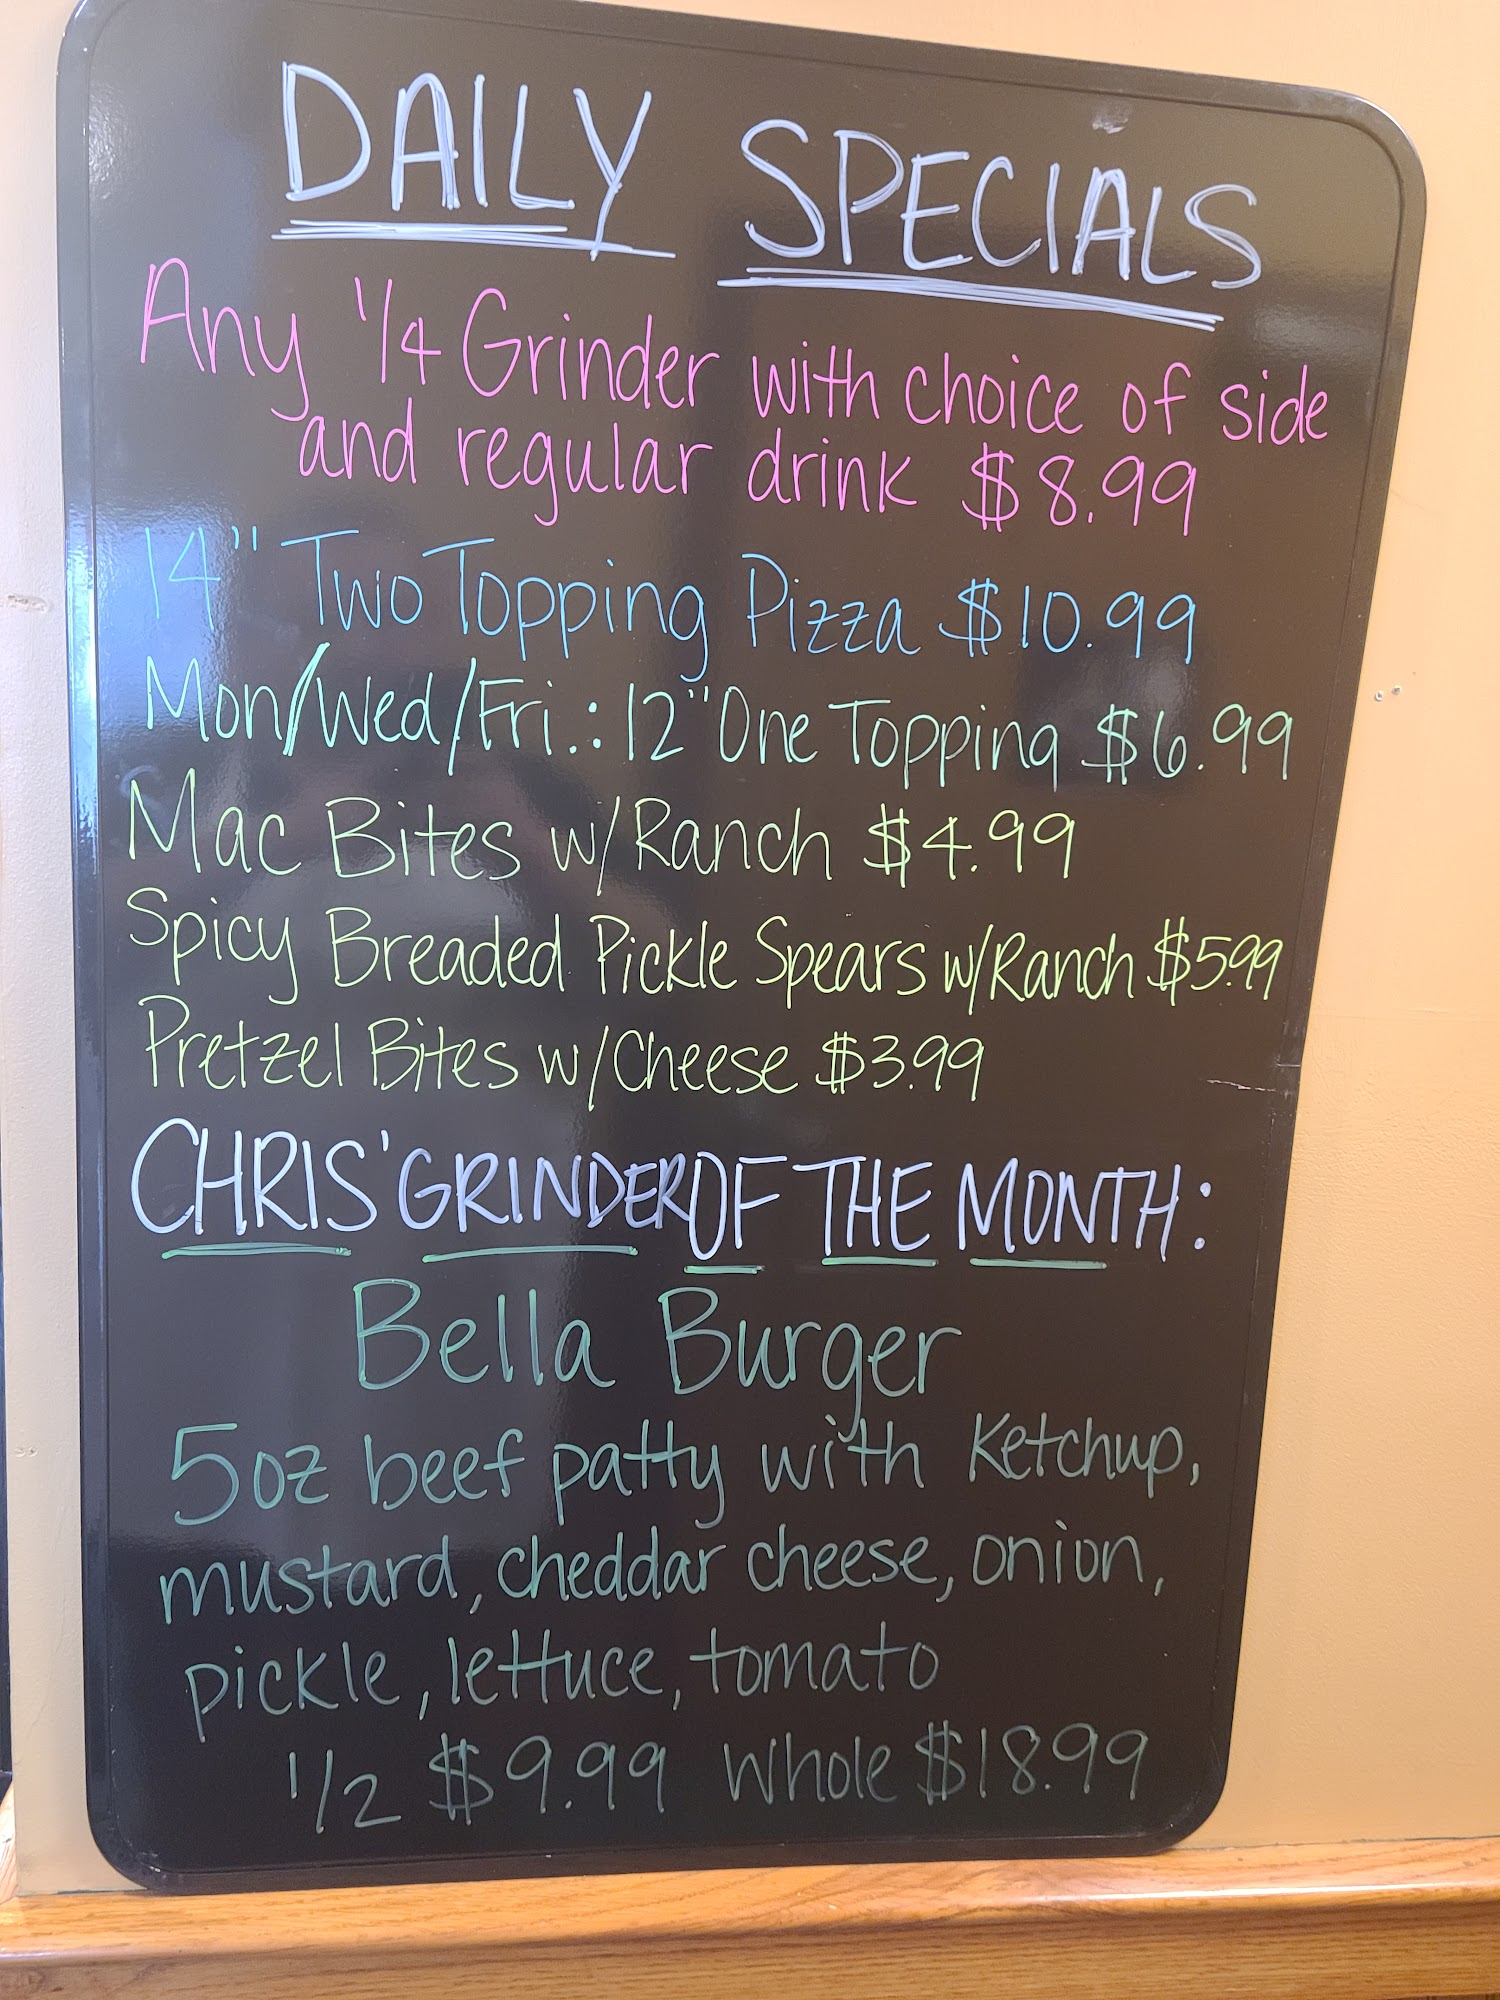 DAILY SPECIALS
Any 1/4 Grinder with choice of side
and regular drink $8.99
14" Two Topping Pizza $10.99
Mon/Wed/Fri.: 12" One Topping $6.99
Mac Bites w/Ranch $4.99
Spicy Breaded Pickle Spears w/Ranch $5.99
Pretzel Bites w/Cheese $3.99
CHRIS' GRINDER OF THE MONTH:
Bella Burger
5oz beef patty with Ketchup,
mustard, cheddar cheese, onion,
pickle, lettuce, tomato
1/2 $9.99 Whole $18.99